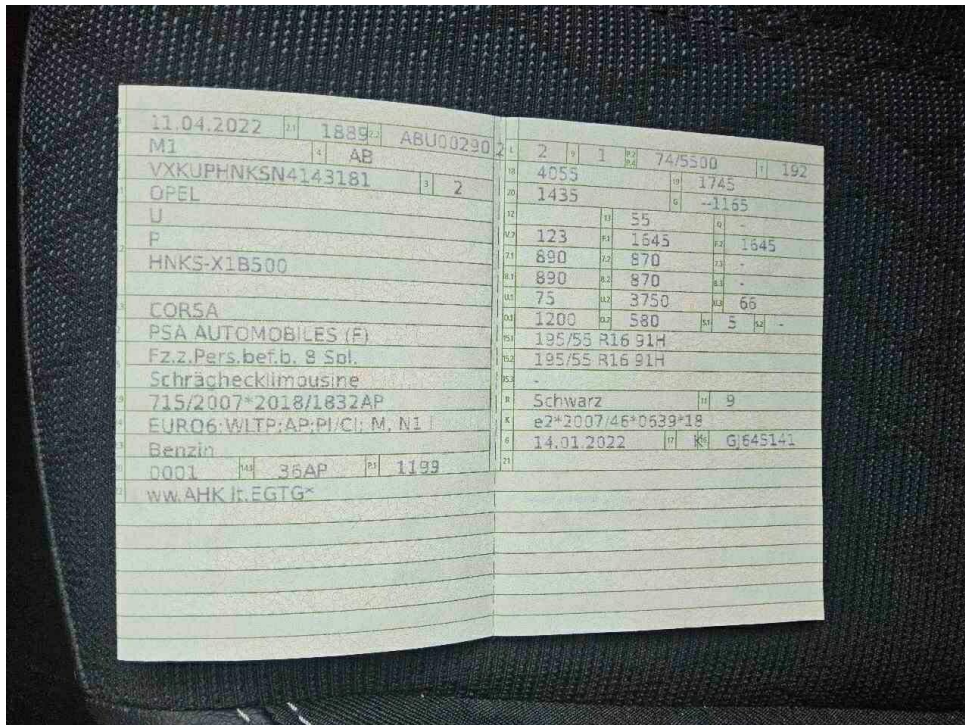 11.04.2022 2.1 1889 2.2 ABU00290 2
M1 4 AB
VXKUPHNKSN4143181 3 2
OPEL
U
P
HNKS-X1B500
CORSA
PSA AUTOMOBILES (F)
Fz.z.Pers.bef.b. 8 Spl.
Schrächecklimousine
715/2007*2018/1832AP
EURO6;WLTP;AP;PI/CI; M, N1 I
Benzin
0001 14.1 36AP P.1 1199
ww.AHK lt.EGTG*
L 2 9 1 P.2 P.4 74/5500 T 192
18 4055 19 1745
20 1435 G --1165
12 13 55 Q -
V.7 123 F.1 1645 F.2 1645
7.1 890 7.2 870 7.3 -
8.1 890 8.2 870 8.3 -
U.1 75 U.2 3750 U.3 66
O.1 1200 O.2 580 S.1 5 S.2 -
15.1 195/55 R16 91H
15.2 195/55 R16 91H
15.3 -
R Schwarz 11 9
K e2*2007/46*0639*18
6 14.01.2022 17 K 16 GJ645141
21